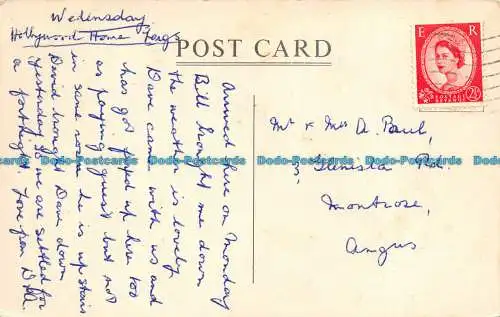 Wedensday
Hollywood Home
POST CARD
E R
POSTAGE REVENUE
2½D
Arrived here on Monday
Bill brought me down
the weather is lovely
Dave came with us and
has got fixed up here too
as paying guest but not
in same room he is up stairs
David brought Dave down
Yesterday so we are settled for
a fortnight Love from
Mr & Mrs A. Paul,
3, Glenesta Rd.
Montrose,
Angus
Dodo-Postcards Dodo-Postcards Dodo-Postcards Dodo-Postcards Dodo-Postcards Dodo-Postcards